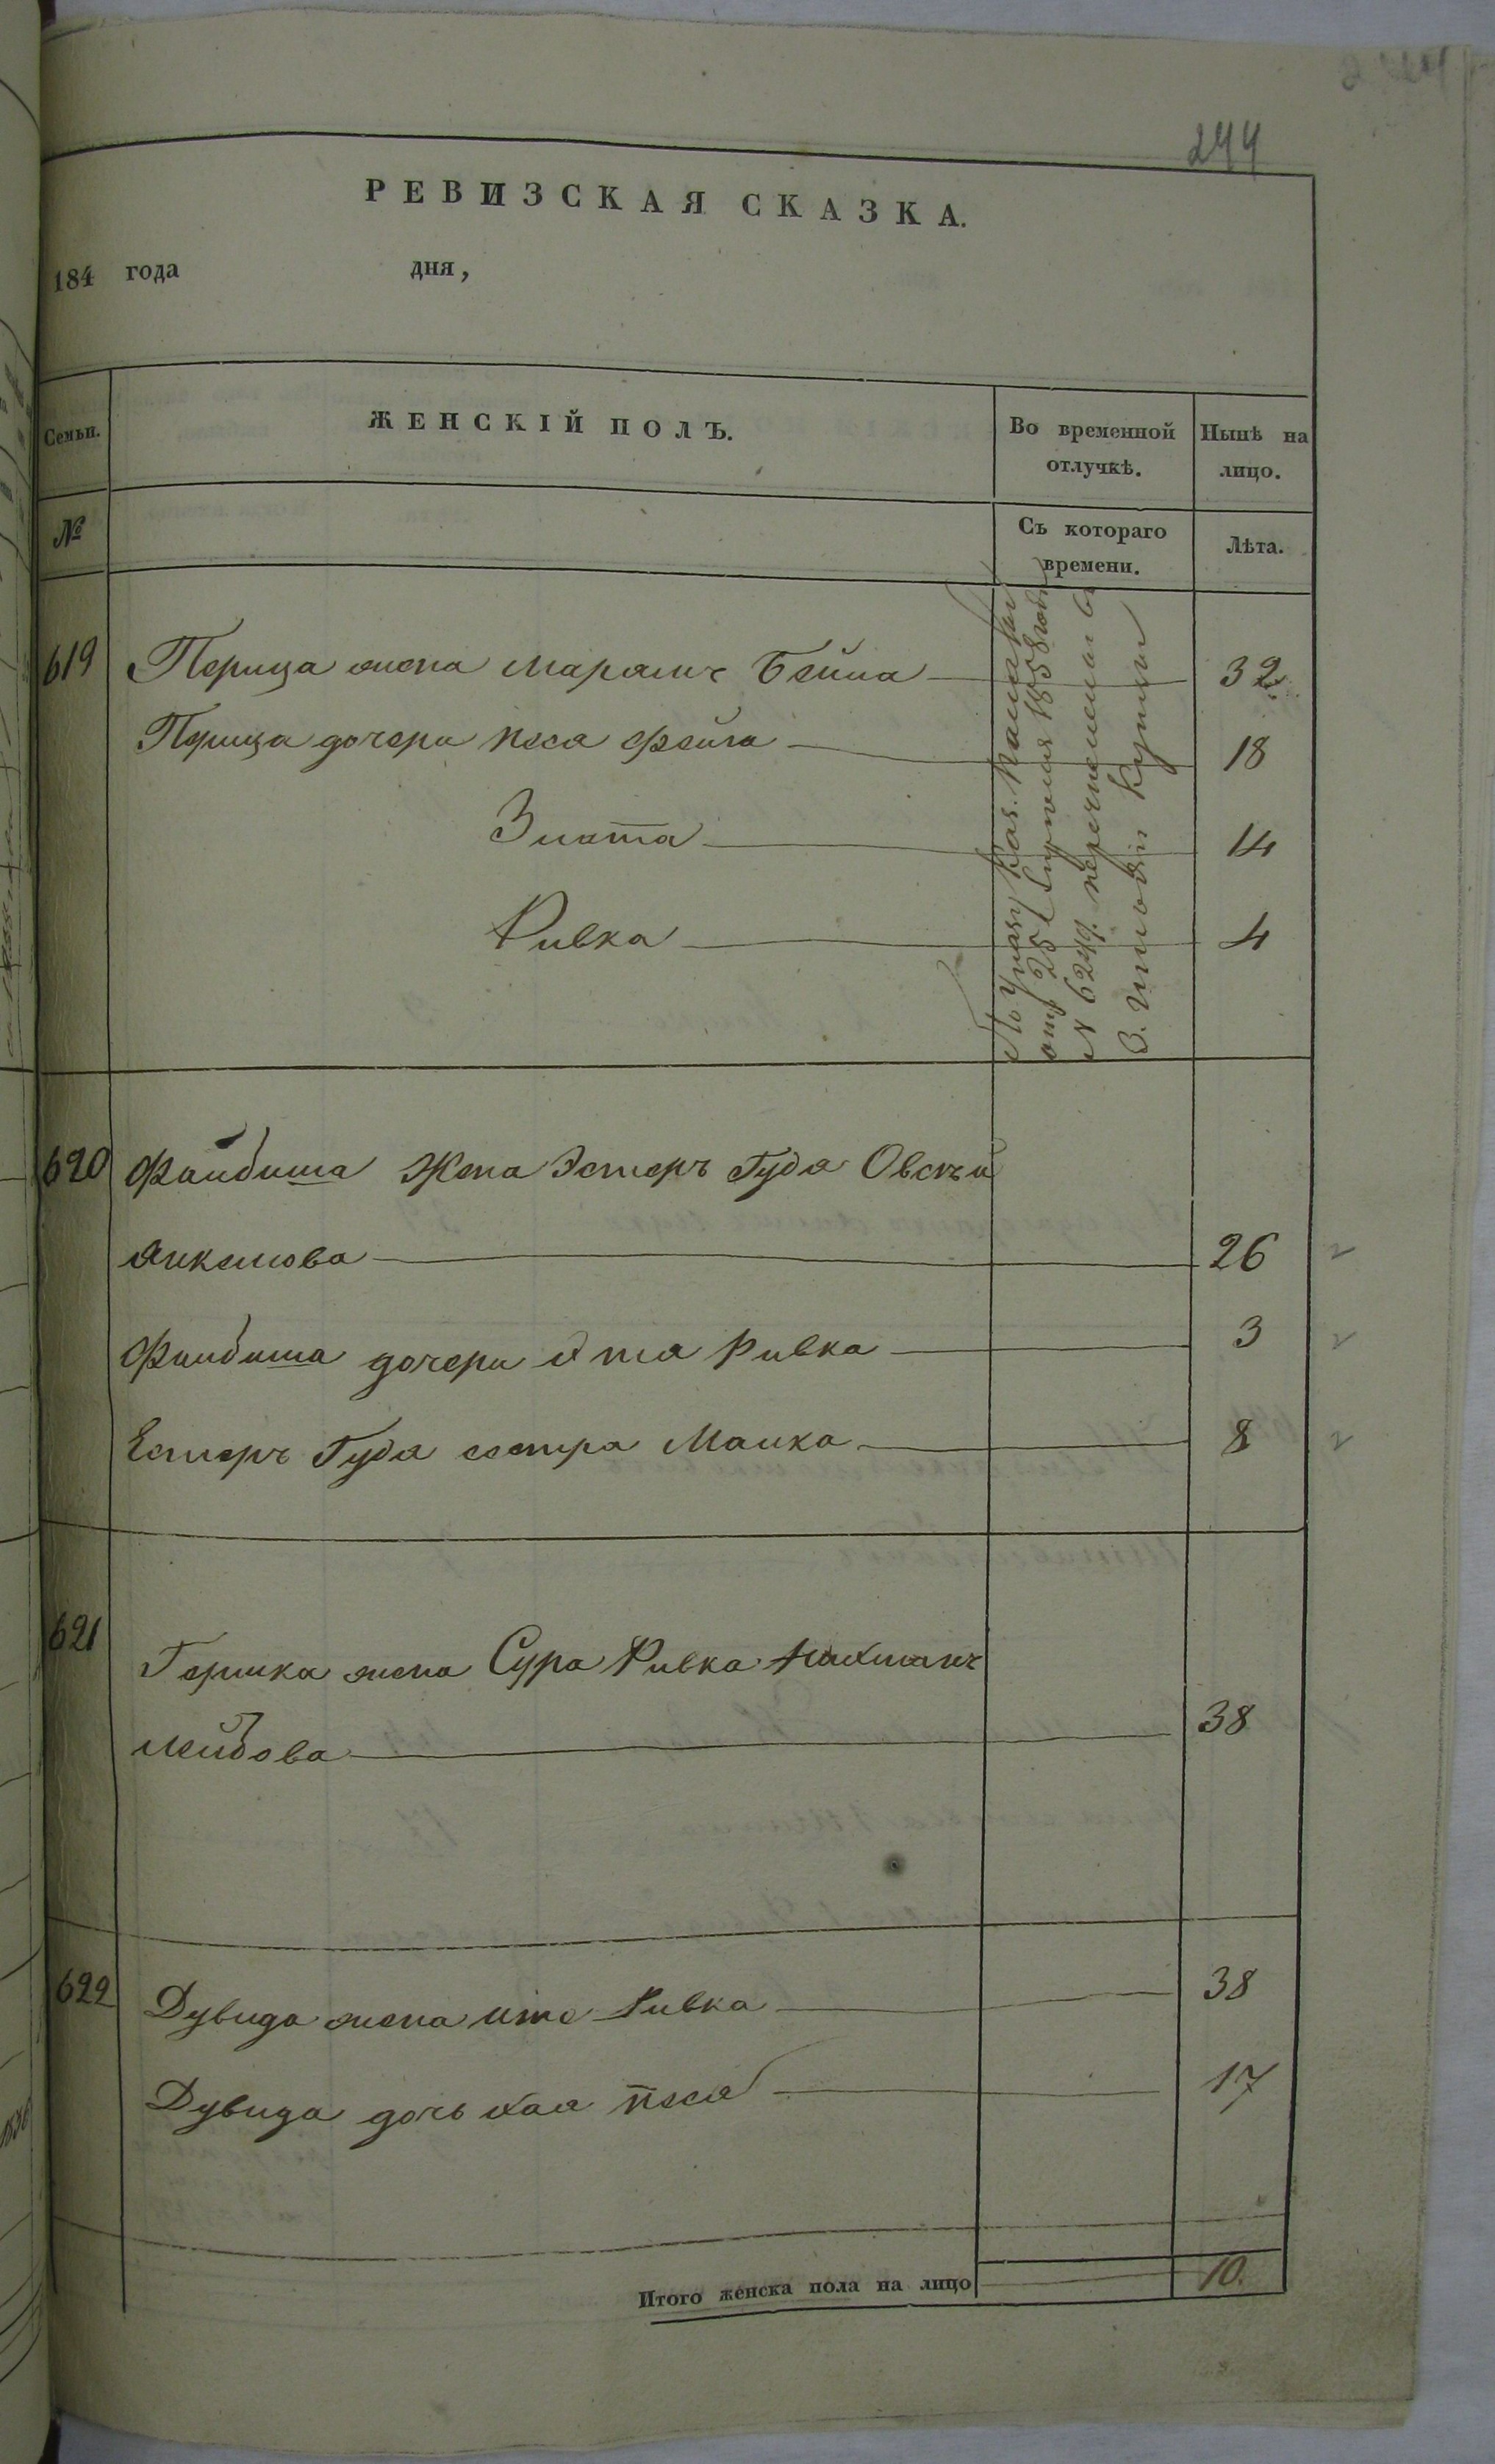 244
РЕВИЗСКАЯ СКАЗКА.
184 года дня,
Семьи. ЖЕНСКІЙ ПОЛЪ. Во временной отлучкѣ. Нынѣ на лицо.
№ Съ котораго времени. Лѣта.
619 Перица жена Марьямъ Бейла 32
Перица дочери Песа Фейга 18
Злата 14
Ривка 4
По Указу Каз. Палаты
отъ 25 1858 года
N 6249. перечислены въ
3. Гильдіи Купцы
620 Файбиша Жена Эстеръ Гуда Овсѣй
Анкелова 26
Файбиша дочери Ита Ривка 3
Естеръ Гуда сестра Малка 8
621 Гершка жена Сура Ривка Нахманъ
Лейбова 38
622 Дувида жена Ите Ривка 38
Дувида дочь Хая Песя 17
Итого женска пола на лицо 10.